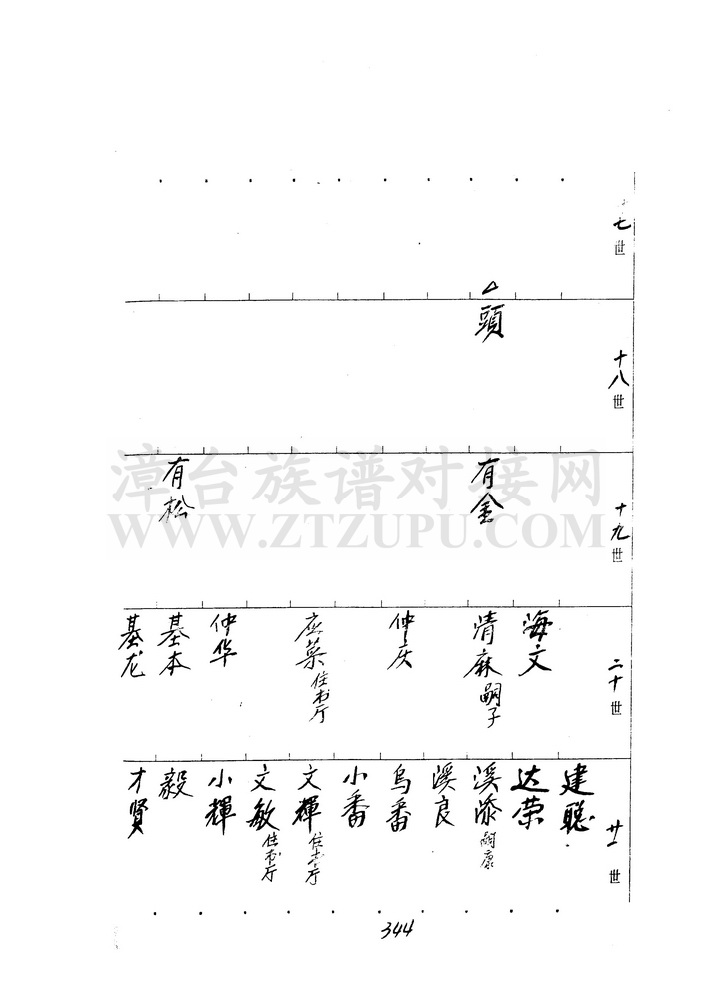 十七世
△頭
十八世
有金
有松
十九世
海文
清麻 嗣子
仲庆
应菜 住书厅
仲华
基本
基龙
二十世
建聪
达荣
溪添 嗣康
溪良
乌番
小番
文輝 住书厅
文敏 住书厅
小輝
毅
才賢
廿一世
344
漳台族谱对接网
WWW.ZTZUPU.COM